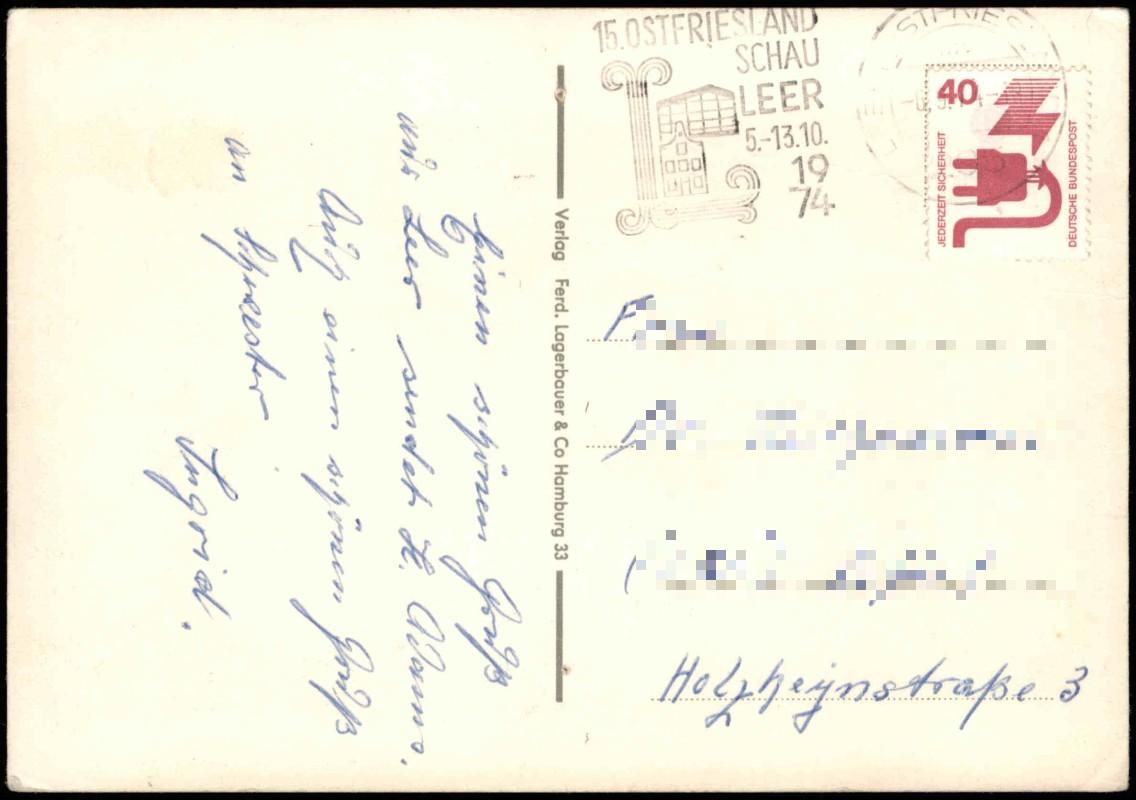 15. OSTFRIESLAND
SCHAU
LEER
5.-13.10.
19
74
40
JEDERZEIT SICHERHEIT
DEUTSCHE BUNDESPOST
Verlag Ferd. Lagerbauer & Co Hamburg 33
Einen schönen Gruß
aus Leer sendet H.
Auch einen schönen Gruß
an Schwester
Ingrid.
Frau
Holzheynstraße 3